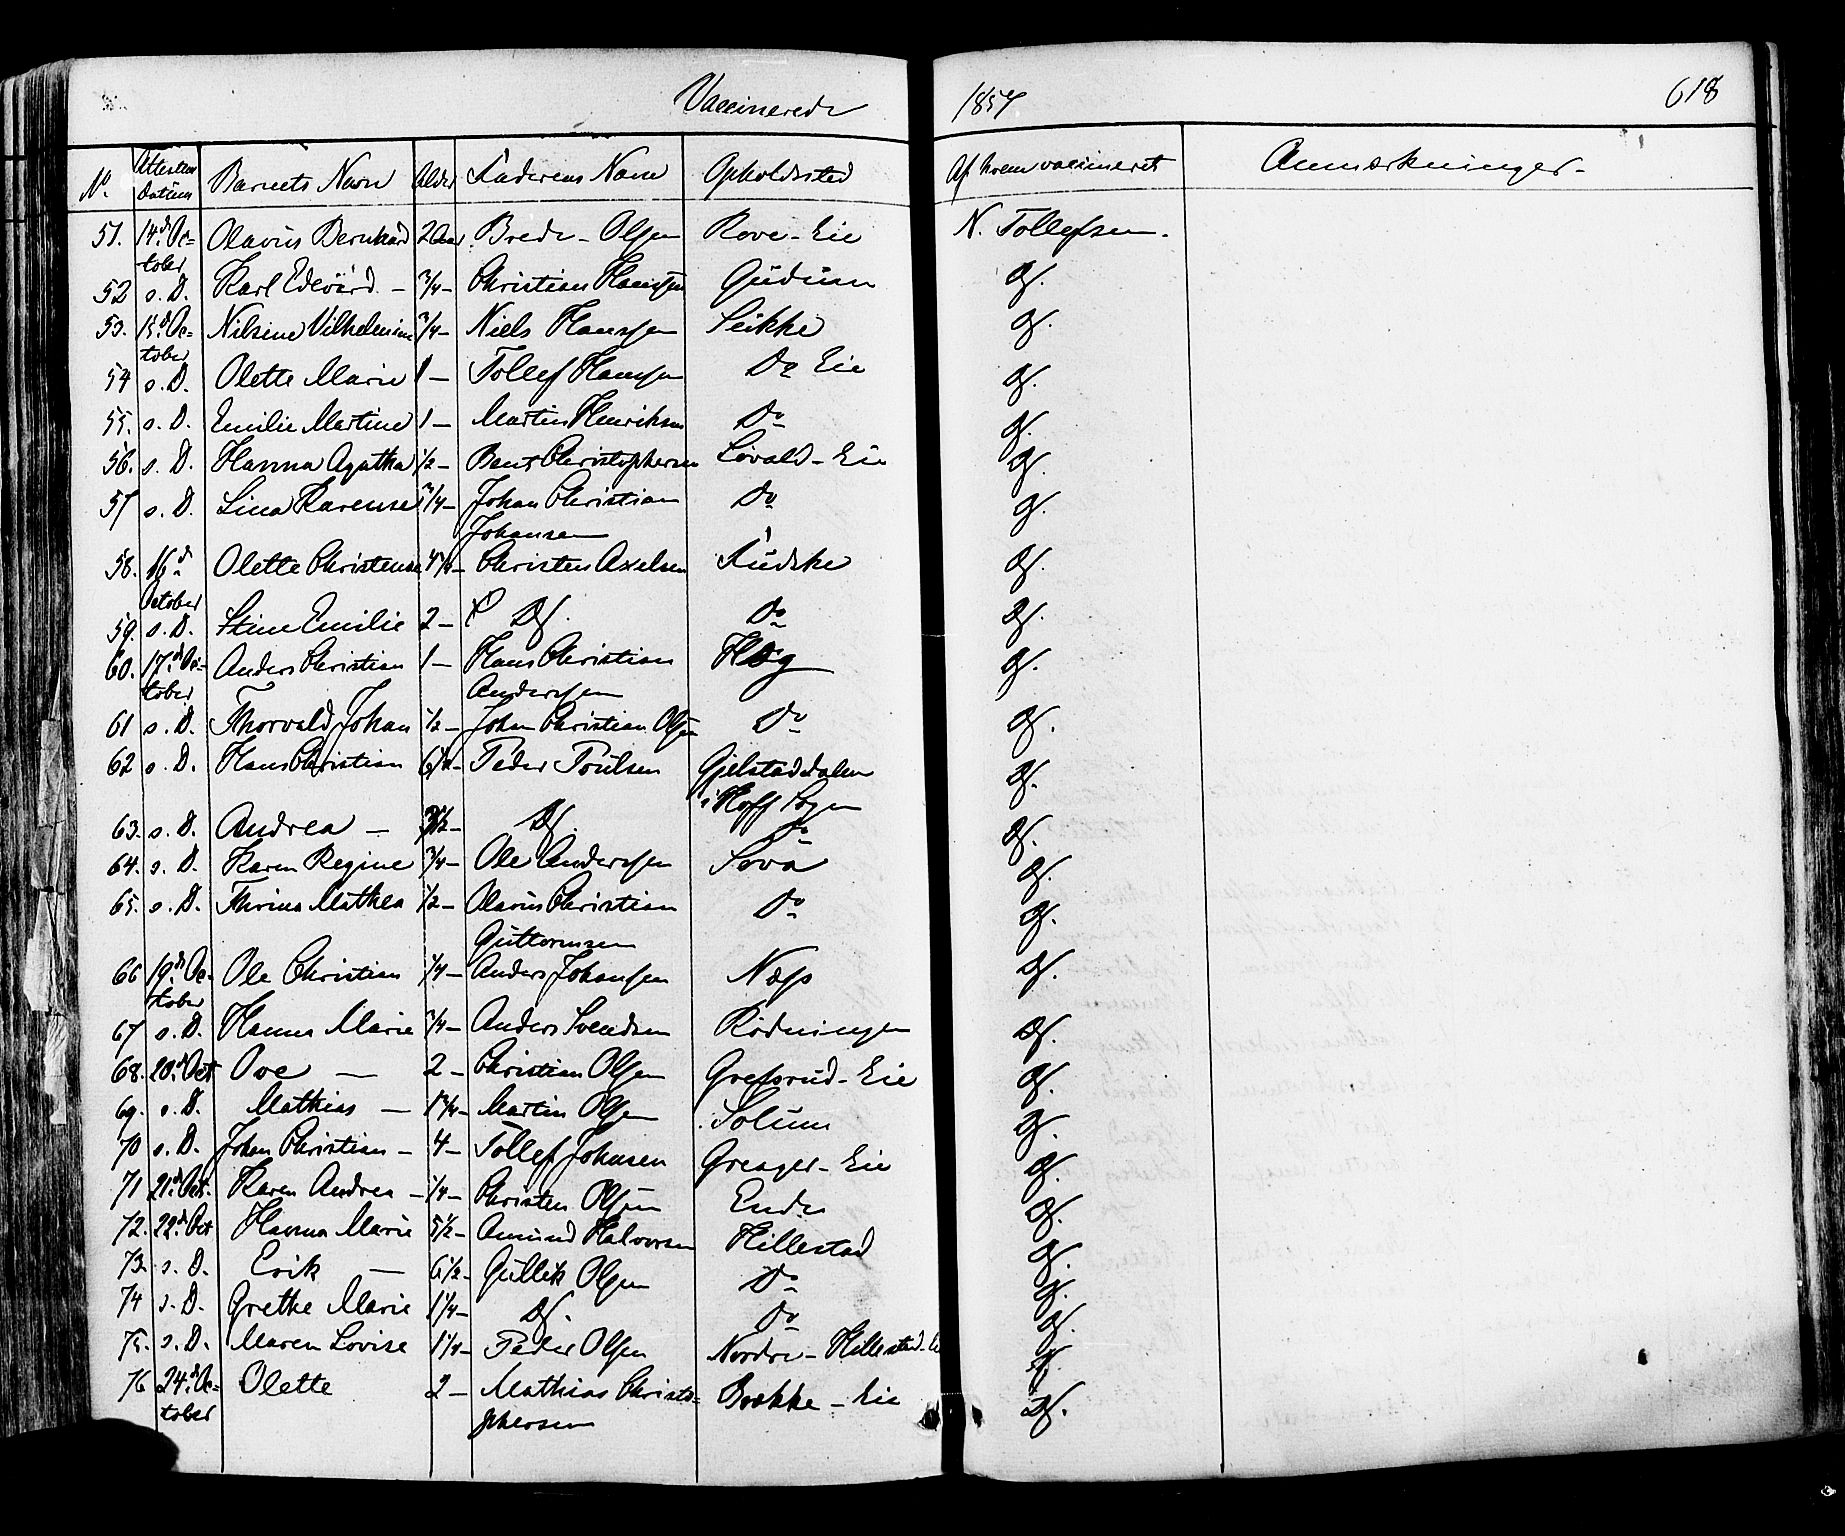 Vaccinerede 1857 618
No. Attestens Datum Barnets Navn Alder Faderens Navn Opholdssted Af hvem vaccineret Anmærkninger
51. 14d Oc- Olavus Bernhard 2 Aar Brede Olsen Rove-Eie N. Tollefsen.
tober
52 s. D. Karl Edvard – 3/4 – Christian Hanssen Gudum Df.
53. 15d Oc- Nilsine Vilhelmine 3/4 – Niels Hanssen Seikke Df.
tober
54 s. D. Olette Marie 1 – Tollef Hansen Do Eie Df.
55. s. D. Emilie Martine 1 – Martin Henriksen Do Df.
56. s. D. Hanna Agatha 1/2 – Bent Christophersen Lövald-Eie Df.
57 s. D. Lina Karense 3/4 – Johan Christian Do Df.
Johansen
58. 16d Olette Christense Christen Axelsen Df.
October
59. s. D. Stine Emilie 2 – Df. Do Df.
60. 17d Oc- Anders Christian 1 – Hans Christian Df.
tober Anderssen
61 s. D. Thorvald Johan 1/2 – John Christian Olsen Do Df.
62 s. D. Hans Christian 6 1/2 – Peder Poulsen Gjelstaddalen Df.
i Hoff Sogn
63. s. D. Andrea – Df. Do Df.
64. s. D. Karen Regine 3/4 – Ole Anderssen Df.
65. s. D. Thrina Mathea 1/2 – Olavus Christian Do Df.
Guttormsen
66 19d Oc- Ole Christian 1/4 – Anders Johanssen Næss Df.
tober
67 s. D. Hanna Marie 3/4 – Anders Svendsen Rødningen Df.
68. 20d Oct Ove – 2 – Christian Olsen Gretsrud-Eie Df.
69. s. D. Mathias – 1 3/4 – Martin Olsen Solum Df.
70 s. D. Johan Christian – 4 – Tollef Johnsen Greager-Eie Df.
71 21d Oct. Karen Andrea – 1/4 – Christen Olsen Df.
72. 22d Oct Hanna Marie 5 1/2 – Amund Halvorsen Hillestad Df.
73 s. D. Erik – 6 1/2 – Gullik Olsen Do Df.
74 s. D. Grethe Marie 1 1/4 – Df. Do Df.
75. s. D. Maren Lovise 1 1/4 – Peder Olsen Nordre-Hillestad-Eie Df.
76 24d Oc- Olette 2 – Mathias Christo- Brække-Eie Df.
tober phersen